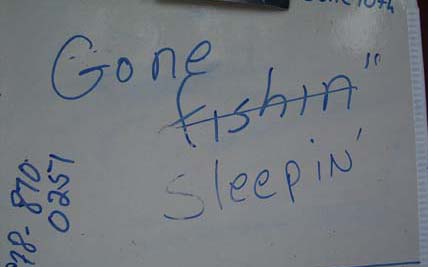 10th
Gone
fishin"
sleepin'
978-870-
0251